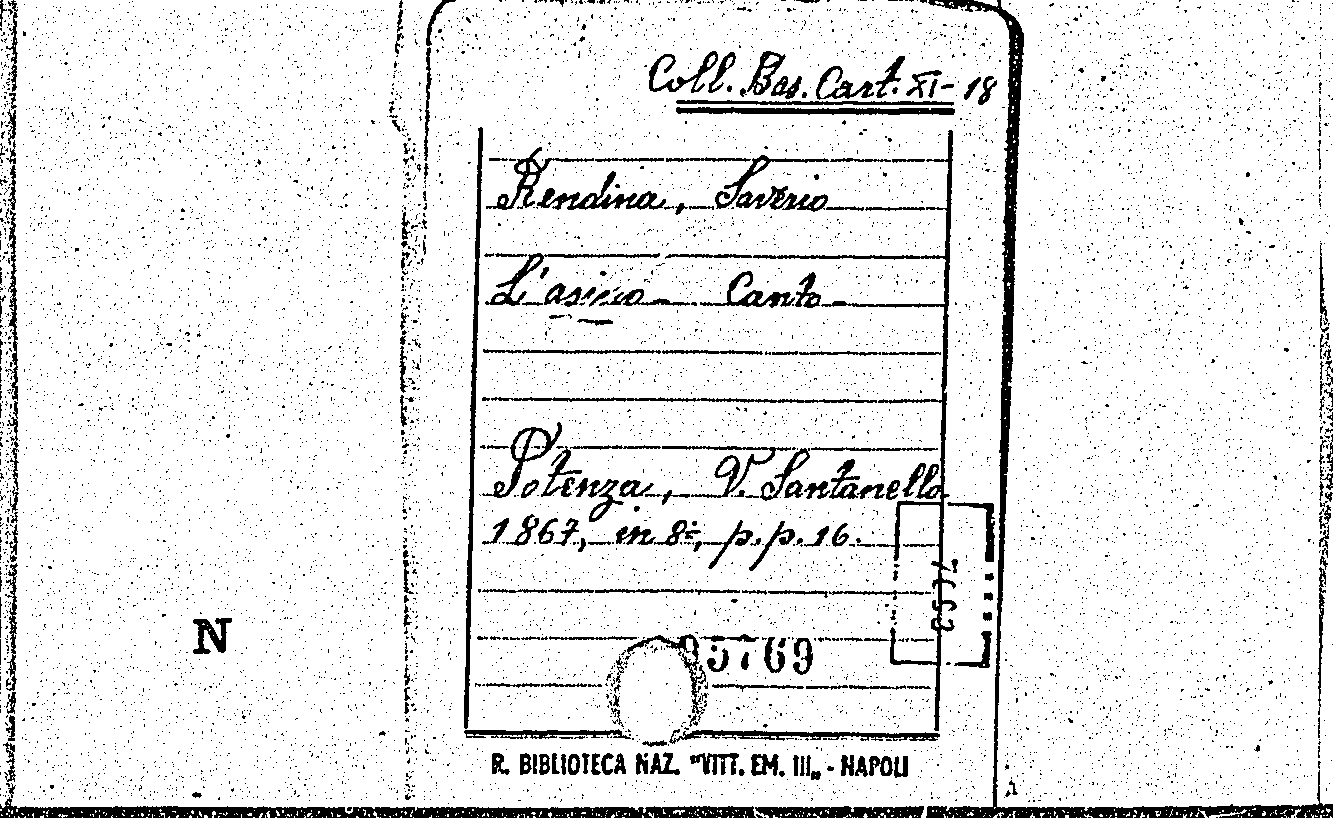 Coll. Bas. Cart. XI-18
Rendina, Saverio
L'asino - Canto -
Potenza, V. Santanello
1867, in 8°, p.p. 16.
N
R. BIBLIOTECA NAZ. "VITT. EM. III„ - NAPOLI